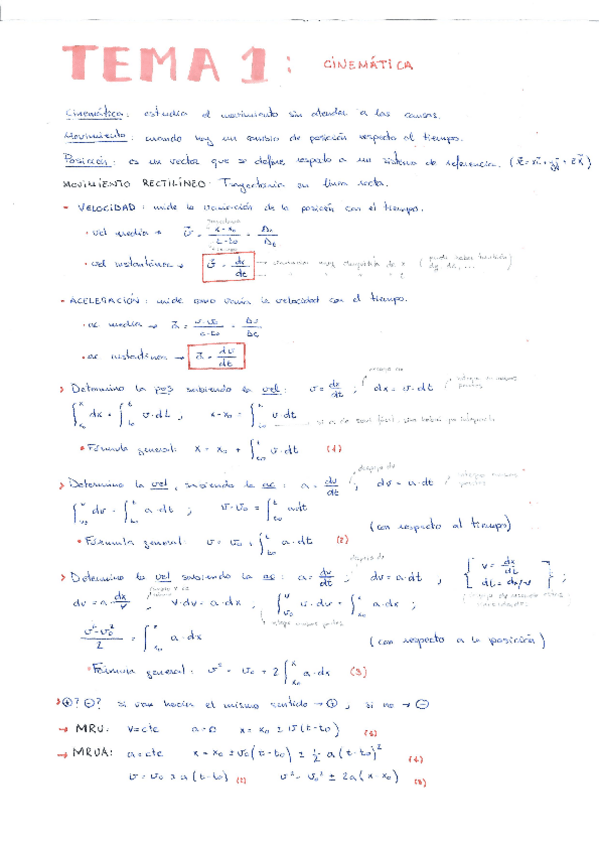 TEMA 1: CINEMÁTICA
Cinemática: estudia el movimiento sin atender a las causas.
Movimiento: cuando hay un cambio de posición respecto al tiempo.
Posición: es un vector que se define respecto a un sistema de referencia.
MOVIMIENTO RECTILÍNEO: Trayectoria en línea recta.
- VELOCIDAD: mide la variación de la posición con el tiempo.
• vel media → v̄ = x-x₀/t-t₀ = Δx/Δt
• vel instantánea → v̄ = dx/dt
- ACELERACIÓN: mide como varía la velocidad con el tiempo.
• ac media → ā = v-v₀/t-t₀ = Δv/Δt
• ac instantánea → ā = dv/dt
> Determino la pos sabiendo la vel: v = dx/dt ; dx = v·dt
∫ₓ₀ˣ dx = ∫ₜ₀ᵗ v·dt , x-x₀ = ∫ₜ₀ᵗ v·dt
• Fórmula general: x = x₀ + ∫ₜ₀ᵗ v·dt (1)
> Determino la vel, sabiendo la ac: a = dv/dt ; dv = a·dt
∫ᵥ₀ᵛ dv = ∫ₜ₀ᵗ a·dt ; v-v₀ = ∫ₜ₀ᵗ a·dt
(con respecto al tiempo)
• Fórmula general: v = v₀ + ∫ₜ₀ᵗ a·dt (2)
> Determino la vel sabiendo la ac: a = dv/dt ; dv = a·dt , [ v = dx/dt dt = dx/v ] ;
dv = a·dx/v ; v·dv = a·dx , ∫ᵥ₀ᵛ v·dv = ∫ₓ₀ˣ a·dx ;
v²-v₀²/2 = ∫ₓ₀ˣ a·dx (con respecto a la posición)
• Fórmula general: v² = v₀ + 2∫ₓ₀ˣ a·dx (3)
> ⊕? ⊖? si van hacia el mismo sentido → ⊕, si no → ⊖
→ MRU: v=cte a=0 x = x₀ ± v(t-t₀)
→ MRUA: a=cte x = x₀ ± v₀(t-t₀) ± ½ a(t-t₀)²
v = v₀ ± a(t-t₀) v² = v₀² ± 2a(x-x₀)